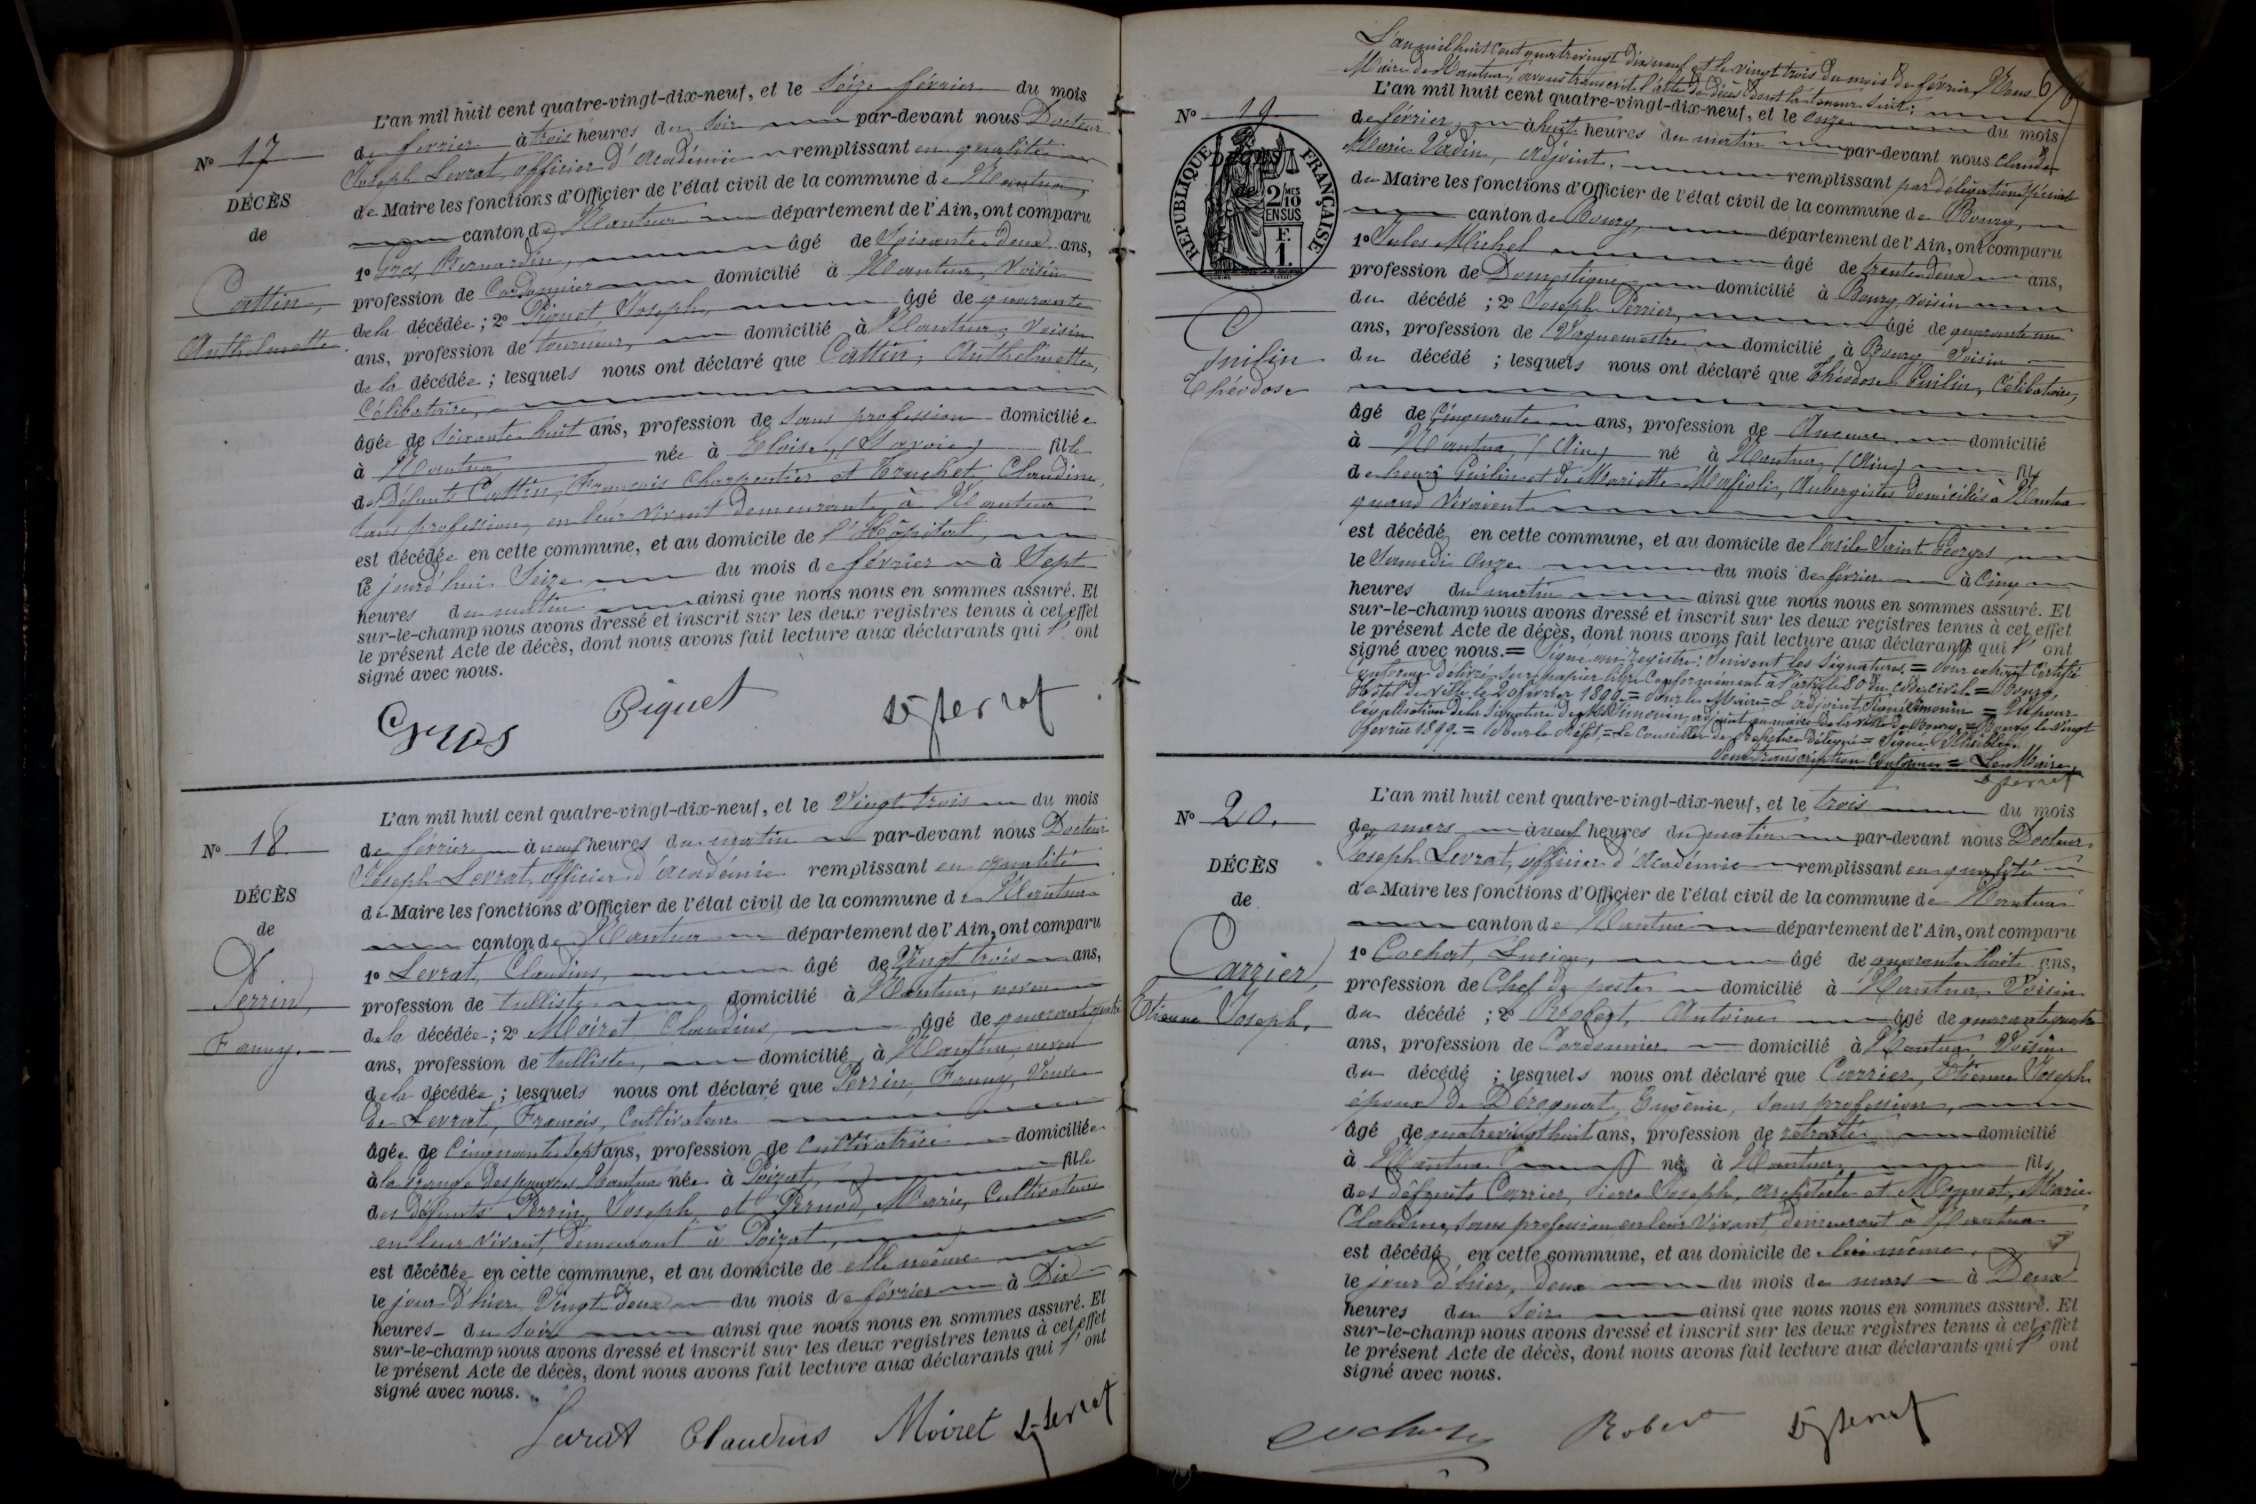 N° 17
DÉCÈS
de
Cattin,
Anthelmette
L'an mil huit cent quatre-vingt-dix-neuf, et le Seize février du mois
de février à trois heures du soir par-devant nous Docteur
Joseph Levrat, officier d'Académie remplissant en qualité
de Maire les fonctions d'Officier de l'état civil de la commune de Nantua,
canton de Nantua département de l'Ain, ont comparu
1° Gros, Bernardin, âgé de Soixante deux ans,
profession de Cordonnier domicilié à Nantua, voisin
de la décédée; 2° Piquet Joseph, âgé de quarante
ans, profession de tourneur, domicilié à Nantua, voisin
de la décédée; lesquels nous ont déclaré que Cattin, Anthelmette,
Célibataire,
âgée de Soixante huit ans, profession de sans profession domiciliée
à Nantua née à Eloise, (Savoie) fille
des défunts Cattin, François Charpentier et Truchet, Claudine,
sans profession, en leur vivant demeurant à Nantua
est décédée en cette commune, et au domicile de l'Hôpital,
le jourd'hui Seize du mois de février à Sept
heures du matin ainsi que nous nous en sommes assuré. Et
sur-le-champ nous avons dressé et inscrit sur les deux registres tenus à cet effet
le présent Acte de décès, dont nous avons fait lecture aux déclarants qui l' ont
signé avec nous.
Gros Piquet Dr J Levrat
N° 18
DÉCÈS
de
Perrin,
Fanny.
L'an mil huit cent quatre-vingt-dix-neuf, et le Vingt trois du mois
de février à neuf heures du matin par-devant nous Docteur
Joseph Levrat, officier d'académie remplissant en qualité
de Maire les fonctions d'Officier de l'état civil de la commune de Nantua
canton de Nantua département de l'Ain, ont comparu
1° Levrat, Claudius, âgé de Vingt trois ans,
profession de tulliste domicilié à Nantua, neveu
de la décédée; 2° Moiret Claudius, âgé de quarante quatre
ans, profession de tulliste, domicilié à Nantua, neveu
de la décédée; lesquels nous ont déclaré que Perrin, Fanny, Veuve
de Levrat, François, Cultivateur
âgée de Cinquante Sept ans, profession de Cultivatrice domiciliée
à la Grange des pauvres Nantua née à Poizat, fille
des défunts Perrin, Joseph et Pernod, Marie, Cultivateurs
en leur vivant, demeurant à Poizat,
est décédée en cette commune, et au domicile de elle même
le jour d'hier Vingt deux du mois de février à Dix
heures du soir ainsi que nous nous en sommes assuré. Et
sur-le-champ nous avons dressé et inscrit sur les deux registres tenus à cet effet
le présent Acte de décès, dont nous avons fait lecture aux déclarants qui l' ont
signé avec nous.
Levrat Claudius Moiret Dr J Levrat
L'an mil huit cent quatre vingt dix neuf et le vingt trois du mois de février, Nous
Maire de Nantua, avons transcrit l'acte de décès dont la teneur suit:
N° 19
RÉPUBLIQUE FRANÇAISE
2/10
MES
EN SUS
F.
1.
Guilin
Théodose
L'an mil huit cent quatre-vingt-dix-neuf, et le onze du mois
de février, à huit heures du matin par-devant nous Claude
Marie Vadin, Adjoint, remplissant par délégation spéciale
de Maire les fonctions d'Officier de l'état civil de la commune de Bourg,
canton de Bourg, département de l'Ain, ont comparu
1° Jules Michel âgé de trente deux ans,
profession de Domestique domicilié à Bourg, voisin
du décédé; 2° Joseph Perrier, âgé de quarante un
ans, profession de Vaguemestre domicilié à Bourg, voisin
du décédé; lesquels nous ont déclaré que Théodose Guilin, Célibataire,
âgé de Cinquante ans, profession de Aucune domicilié
à Nantua, (Ain) né à Nantua, (Ain) fils
de henri Guilin et de Mariette Mafioli, Aubergistes domiciliés à Nantua
quand vivaient
est décédé en cette commune, et au domicile de l'asile Saint Georges
le Samedi Onze du mois de février à Cinq
heures du matin ainsi que nous nous en sommes assuré. Et
sur-le-champ nous avons dressé et inscrit sur les deux registres tenus à cet effet
le présent Acte de décès, dont nous avons fait lecture aux déclarants qui l' ont
signé avec nous. = Signé au registre: Suivent les signatures. = Pour extrait Certifié
Conforme délivré sur papier libre Conformément à l'article 80 du code civil. = Bourg,
Hôtel de Ville le 20 février 1899. = Pour le Maire = L'adjoint, Signé: Limonin = Vu pour
légalisation de la signature de M. Limonin adjoint au maire de la ville de Bourg, = Bourg le vingt
février 1899. = Pour le Préfet, = Le Conseiller de préfecture délégué =
Pour transcription Conforme = Le Maire,
Dr J Levrat
N° 20.
DÉCÈS
de
Carrier,
Etienne Joseph.
L'an mil huit cent quatre-vingt-dix-neuf, et le trois du mois
de mars à neuf heures du matin par-devant nous Docteur
Joseph Levrat, officier d'Académie remplissant en qualité
de Maire les fonctions d'Officier de l'état civil de la commune de Nantua
canton de Nantua département de l'Ain, ont comparu
1° Cochat, Lucien, âgé de quarante huit ans,
profession de Chef de poste domicilié à Nantua, Voisin
du décédé; 2° Robert, Antoine âgé de quarante quatre
ans, profession de Cordonnier domicilié à Nantua, Voisin
du décédé; lesquels nous ont déclaré que Carrier, Etienne Joseph
époux de Dérognat, Eugénie, sans profession,
âgé de quatre vingt huit ans, profession de retraité domicilié
à Nantua né à Nantua, fils
des défunts Carrier, Pierre Joseph, architecte et Moynat, Marie
Claudine, sans profession en leur vivant, demeurant à Nantua
est décédé en cette commune, et au domicile de lui même.
le jour d'hier, deux du mois de mars à Deux
heures du soir ainsi que nous nous en sommes assuré. Et
sur-le-champ nous avons dressé et inscrit sur les deux registres tenus à cet effet
le présent Acte de décès, dont nous avons fait lecture aux déclarants qui l' ont
signé avec nous.
Cochat Robert Dr J Levrat